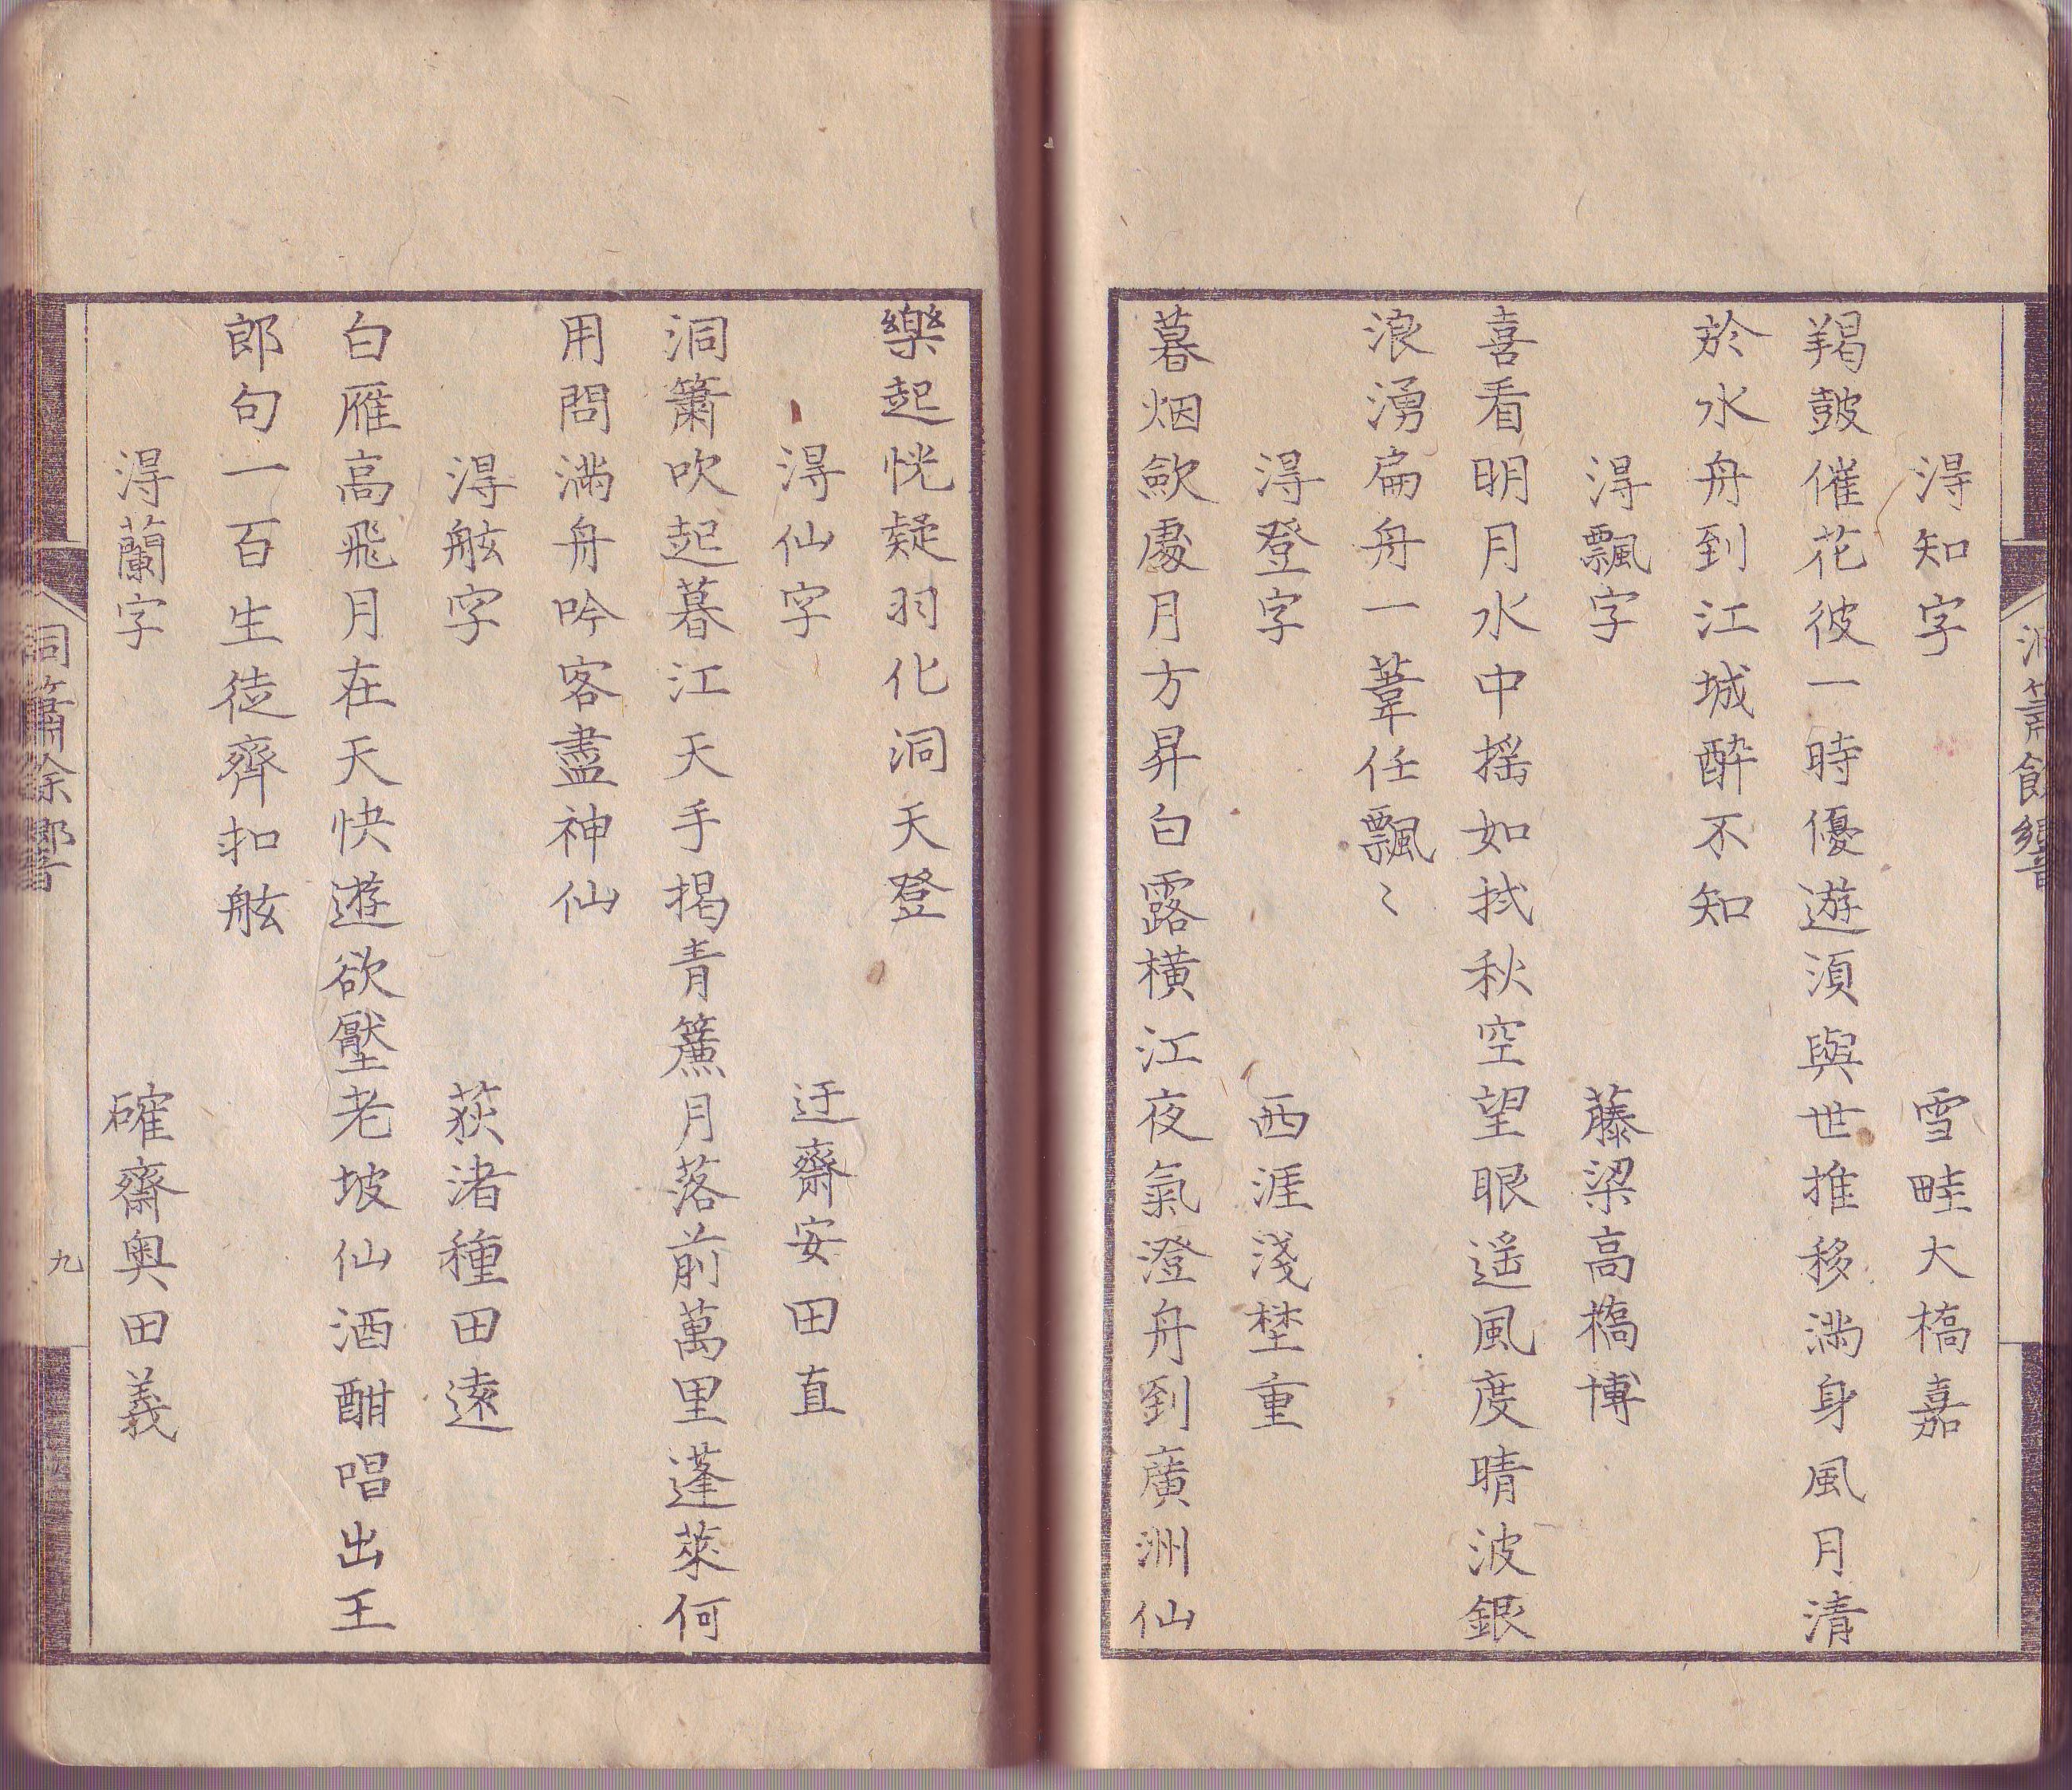 洞簫餘響
得知字　雪畦大橋嘉
羯鼓催花彼一時優遊須與世推移滿身風月清
於水舟到江城醉不知
得飄字　藤梁高橋博
喜看明月水中搖如拭秋空望眼遥風度晴波銀
浪湧扁舟一葦任飄〻
得登字　西涯淺埜重
暮烟歛處月方昇白露橫江夜氣澄舟到廣洲仙
樂起恍疑羽化洞天登
得仙字　迂齋安田直
洞簫吹起暮江天手揭青簾月落前萬里蓬萊何
用問滿舟吟客盡神仙
得舷字　荻渚種田遠
白雁高飛月在天快遊欲壓老坡仙酒酣唱出王
郎句一百生徒齊扣舷
得蘭字　確齋奥田義
洞簫餘響
九